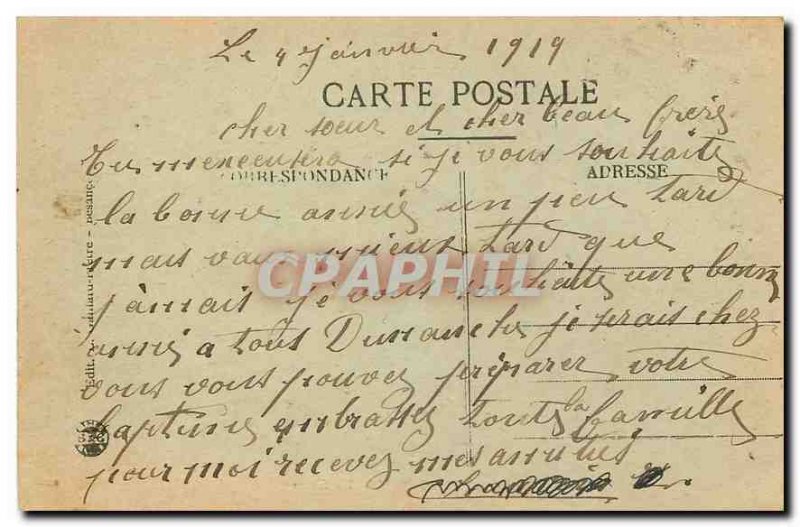 Le 4 janvier 1919
CARTE POSTALE
cher sœur et cher beau frère
Tu mexcusera si je vous souhaite
CORRESPONDANCE ADRESSE
la bonne année un peu tard
mais vaut mieux tard que
CPAPHIL
jamais je vous souhaite une bonne
année a tous Dimanche je serais chez
vous vous pouvez préparer votre
embrassez toute la famille
pour moi recevez mes
Edit. Besançon